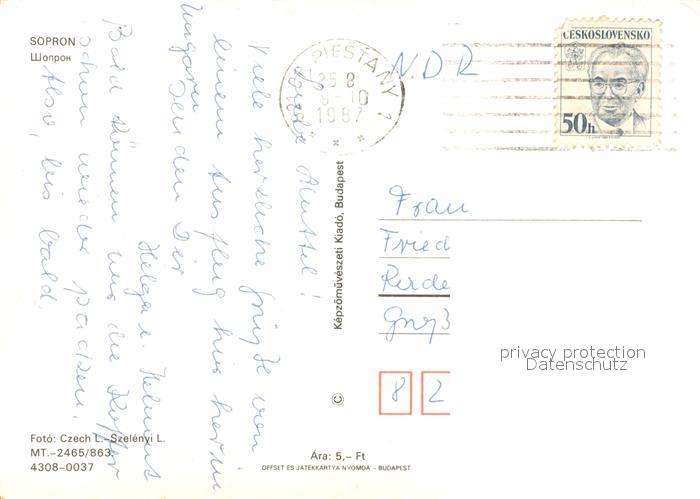 SOPRON
Шопрон
Mutter!
Viele herzliche Grüße von
einem Ausflug hier her in
Ungarn
senden Dir
Helga u. Helmut
Bald können wir die Koffer
schon wieder packen.
Also, bis bald.
Fotó: Czech L.–Szelényi L.
MT.–2465/863
4308–0037
Képzőművészeti Kiadó, Budapest
©
Ára: 5,– Ft
OFFSET ÉS JÁTÉKKÁRTYA NYOMDA – BUDAPEST
PIEŠŤANY 1
25 8
9-10
1987
ČESKOSLOVENSKO
50h
N.D.R
Frau
Fried
8 2
privacy protection
Datenschutz